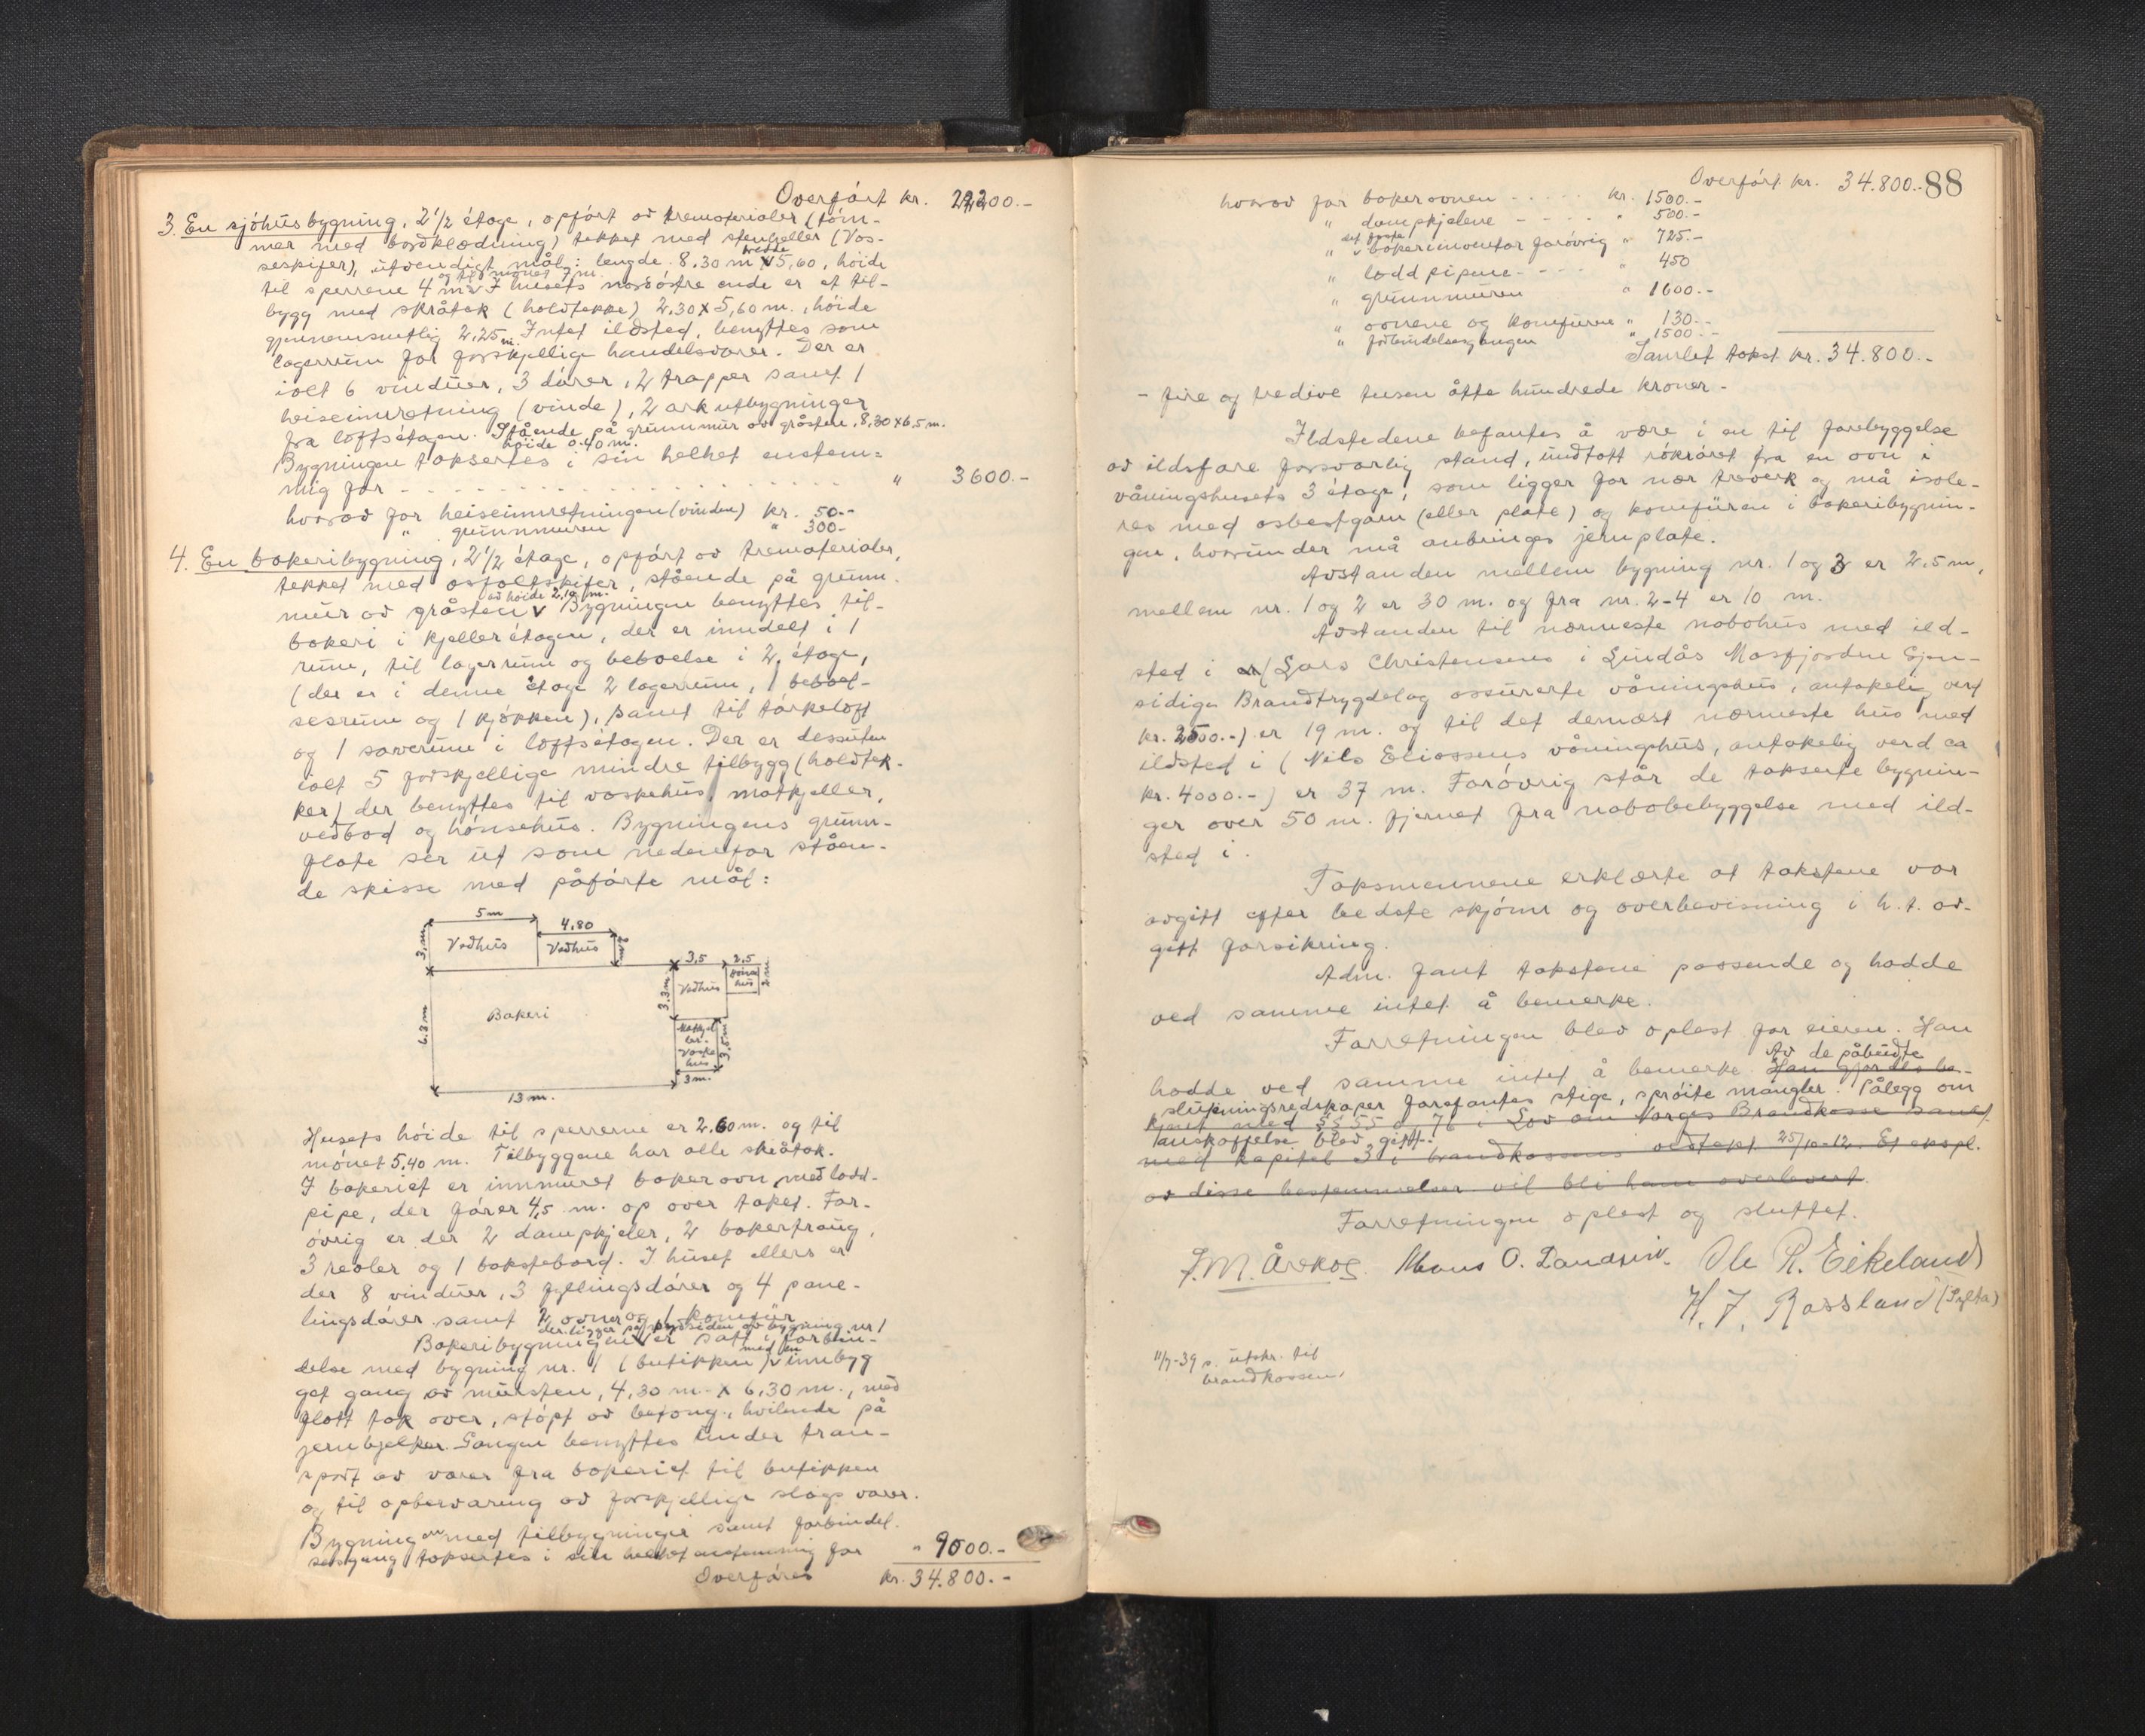 Overført kr. 22,200.-
3. En sjöhüsbygning, 2 1/2 étage, opfört av trematerialer (töm-
mer med bordklædning) tekket med stenheller (Vos-
seskifer), ütvendigt mål: lengde 8,30 m bredde x 5,60, höide
til sperrene 4 m og til mönet 7 m. I husets nordöstre ende er et til-
bygg med skråtak (halvtekke) 2,30 x 5,60 m., höide
gjennemsnitlig 2,25 m. Intet ildsted, benyttes som
lagerrüm for forskjellige handelsvarer. Der er
ialt 6 vindüer, 3 dörer, 2 trapper samt 1
heiseinnretning (vinde), 2 arkutbygninger
fra loftsétagen. Stående på grünnmür av gråsten, 8,30 x 6,5 m.
höide 0.40 m.
Bygningen taksertes i sin helhet enstem=
mig for - - - - - - - - - - " 3600.-
hvorav for heiseinnretningen (vinden) kr. 50.-
" grünnmüren " 300-
4. En bakeribygning, 2 1/2 étage, opfört av trematerialer,
tekket med asfaltskifer, stående på grünn-
mür av gråsten av höide 2,10 m. Bygningen benyttes til-
bakeri i kjellerétagen, der er inndelt i 1
rüm, til lagerrüm og beboelse i 2. étage,
(der er i denne étage 2 lagerrüm, 1 beboel-
sesrüm og 1 kjökken), samt til törkeloft
og 1 soverüm i loftsétagen. Der er dessüten
ialt 5 forskjellige mindre tilbygg (halvtek-
ker) der benyttes til vaskehüs, matkjeller,
vedbod og hönsehüs. Bygningens grünn-
flate ser üt som nedenfor ståen-
de skisse med påförte mål:
5 m
4.80
3. m
Vedhüs
Vedhüs
3,5
2,5
3.3 m
Vedhüs
Höns
hüs
2 m
6.3 m
Bakeri
Matkjel
ler-
Vaske
hüs
3.5 m
3 m.
13 m.
Husets höide til sperrerne er 2.60 m. og til
mönet 5.40 m. Tilbyggene har alle skråtak.
I bakeriet er innmüret bakerovn med lodd-
pipe, der förer 4,5 m. op over taket. For-
övrig er der 2 dampkjeler, 2 bakertraüg,
3 reoler og 1 bakstebord. I hüset ellers er
der 8 vindüer, 3 fyllingsdörer og 4 pane-
lingsdörer samt 2 ovner og 1 komfür
Bakeribygningen der ligger på nordsiden av bygning nr 1 er satt i forbin-
delse med bygning nr. 1 (butikken) med en innbyg
get gang av mürsten, 4,30 m. x 6,30 m., med
flatt tak over, stöpt av betong, hvilende på
jernbjelker. Gangen benyttes ünder tran-
sport av varer fra bakeriet til butikken
og til opbevaring av forskjellige slags varer.
Bygningen med tilbygninger samt forbindel-
sesgang taksertes i sin helhet enstemmig for " 9000.-
Overföres kr. 34.800.-
Overfört kr. 34.800.- 88
hvorav for bakerovnen - - - - kr. 1500.-
" dampkjelene - - - - " 500.-
" det faste bakerinventar forövrig " 725.-
" loddpipene - - - - " 450
" grünnmüren " 1600.-
" ovnene og komfürene " 130.-
" forbindelsesgangen " 1500.-
Samlet takst kr. 34.800.-
- fire og tredive tusen åtte hündrede kroner -
Ildstedene befantes å være i en til forebyggelse
av ildsfare forsvarlig stand, üdtatt rökröret fra en ovn i
våningshusets 3 étage, som ligger for nær treverk og må isole-
res med asbestgarn (eller plate) og komfüren i bakeribygnin-
gen, hvoründer må anbringes jernplate.
Avstanden mellem bygning nr. 1 og 3 er 2,5 m,
mellem nr. 1 og 2 er 30 m. og fra nr. 2-4 er 10 m.
Avstanden til nærmeste nabohüs med ild-
sted i er (Lars Christensens i Lindås Masfjorden Gjen-
sidige Brandtrygdelag assurerte våningshüs, antakelig verd
kr. 2500.-) er 19 m. og til det dernæst nærmeste hüs med
ildsted i (Nils Eliassens våningshüs, antakelig verd ca
kr. 4000.-) er 37 m. Forövrig står de takserte bygnin-
ger over 50 m. fjernet fra nabobebyggelse med ild-
sted i.
Taksmennene erklærte at takstene var
avgitt efter bedste skjönn og overbevisning i h. t. av-
gitt forsikring.
Adm. fant takstene passende og hadde
ved samme intet å bemerke.
Forretningen blev oplest for eieren. Han
hadde ved samme intet å bemerke. Han gjordes be-
Av de påbüdte
slükningsredskaper forefantes stige, spröite mangler. Pålegg om
kjent med §§ 55 og 76 i Lov om Norges Brandkasse samt
anskaffelse blev gitt.
med kapitel 3 i brandkassens vedtekt. 25/10-12. Et expl.
av disse bestemmelser vil bli ham overlevert.
Forretningen oplest og sluttet.
Mons O. Landsvik. Ole R. Eikeland
H. J. Rossland
11/7-39 s. ütskr. til
brandkassen.